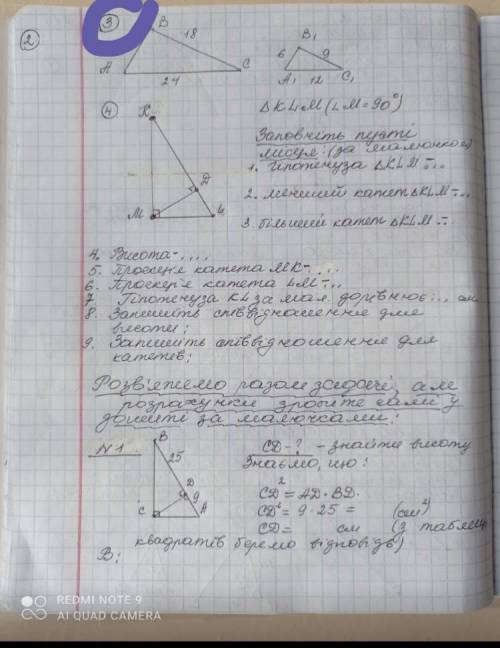 2
3
B
18
A
C
24
B₁
6
9
A₁
12
C₁
4
K
ΔKLM (∠M=90°)
Заповніть пусті
місця: (за малюнком)
1. Гіпотенуза ΔKLM-...
D
2. менший катет ΔKLM-...
M
L
3. більший катет ΔKLM-...
4. Висота-....
5. Проекція катета MK-....
6. Проекція катета LM-...
7. Гіпотенуза KL за мал. дорівнює... см
8. Запишіть співвідношення для
висоти;
9. Запишіть співвідношення для
катетів;
Розв'яжемо разом задачі, але
розрахунки зробіть самі у
зошиті за малюнками:
N1.
B
25
D
9
C
A
CD-? - знайти висоту
Знаємо, що:
CD²=AD·BD.
CD²=9·25= (см²)
CD= см (з таблиці
квадратів беремо відповідь)
В:
REDMI NOTE 9
AI QUAD CAMERA